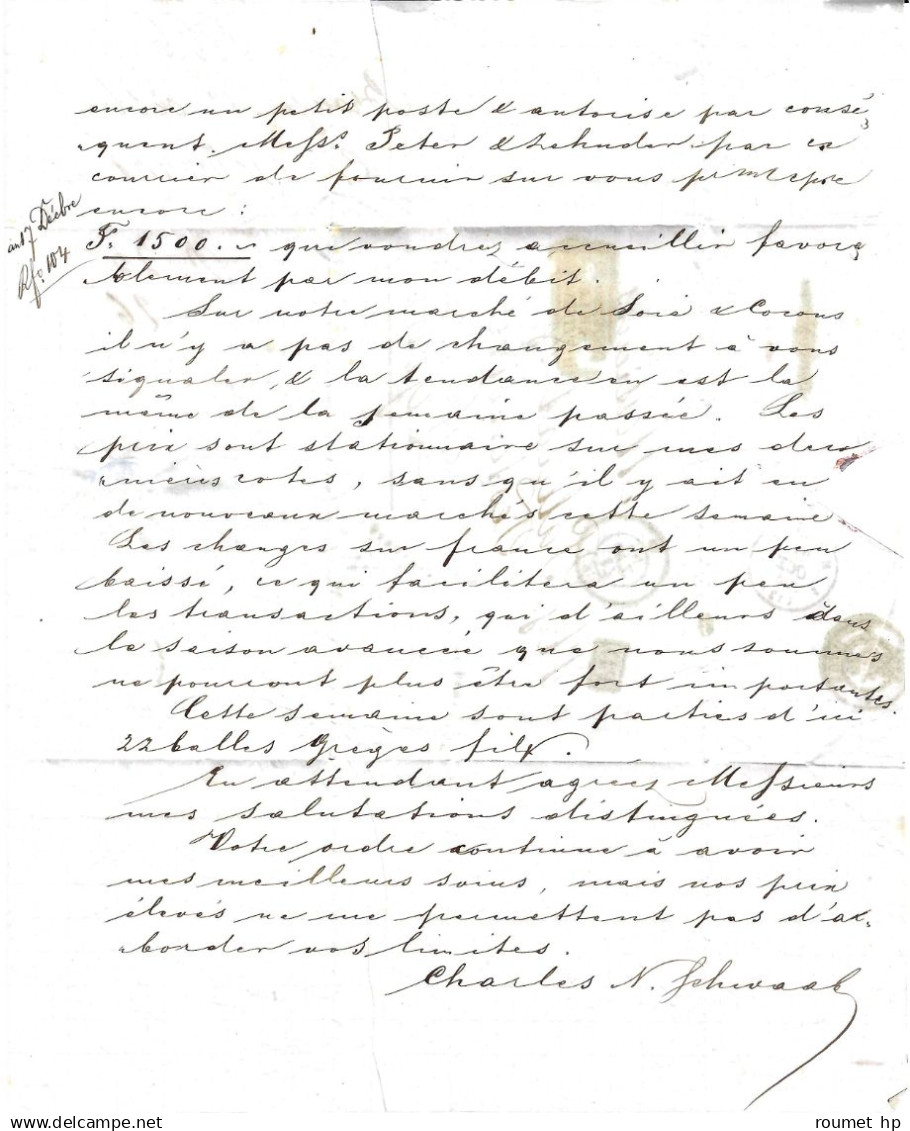 encore un petit poste & autorise par consé
quent Mess.rs Peter & Zehnder par ce
courrier de fournir sur vous
encore :
au 17 Décbre
No. 104
F. 1500. — que voudrez accueillir favora
blement par mon débit.
Sur notre marché de Soie & Cocons
il n'y a pas de changement à vous
signaler, & la tendance en est la
même de la semaine passée. Les
prix sont stationnaire sur mes der
nières cotes, sans qu'il y ait eu
de nouveaux marchés cette semaine
Les changes sur france ont un peu
baissé, ce qui facilitera un peu
les transactions, qui d'ailleurs dans
la saison avancée que nous sommes
ne pourront plus être fort importantes.
Cette semaine sont parties d'ici
22 balles Grèges fil
En attendant agréez Messieurs
mes salutations distinguées.
Votre ordre continue à avoir
mes meilleurs soins, mais nos prix
élevés ne me permettent pas d'a
border vos limites.
Charles N. Schwaab
roumet hp